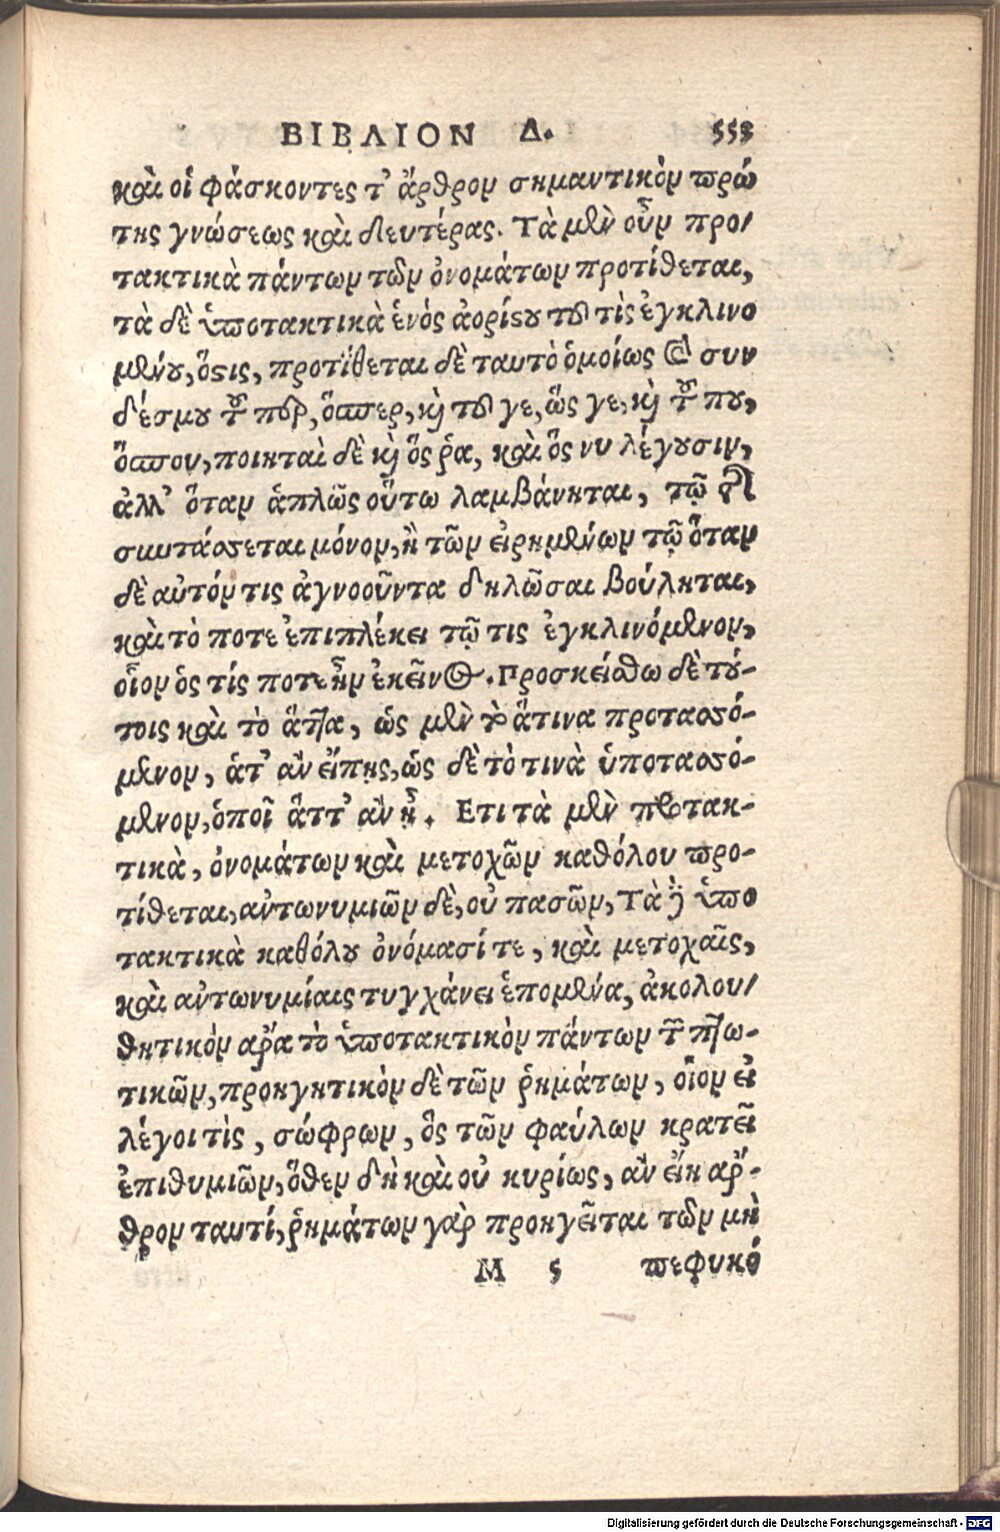 ΒΙΒΛΙΟΝ Δ. 553
καὶ οἱ φάσκοντες τ' ἄρθρον σημαντικὸν πρώ
της γνώσεως καὶ δευτέρας. Τὰ μὲν οὖν προ/
τακτικὰ πάντων τῶν ὀνομάτων προτίθεται,
τὰ δὲ ὑποτακτικὰ ἑνός ἀορίστου τοῦ τὶς ἐγκλινο
μένου, ὅστις, προτίθεται δὲ ταυτὸ ὁμοίως καὶ συν
δέσμου τοῦ πὲρ, ὅπερ, καὶ τοῦ γε, ὥς γε, καὶ τοῦ που,
ὅπου, ποιηταὶ δὲ καὶ ὅς ῥα, καὶ ὅς νυ λέγουσιν,
ἀλλ' ὅταν ἁπλῶς οὕτω λαμβάνηται, τῷ
συντάσσεται μόνον, ἢ τῶν εἰρημένων τῷ ὅταν
δὲ αὐτόν τις ἀγνοοῦντα δηλῶσαι βούληται,
καὶ τὸ ποτε ἐπιπλέκει τῷ τις ἐγκλινόμενον,
οἷον ὁς τίς ποτε ἦν ἐκεῖνος. Προσκείσθω δὲ τού-
τοις καὶ τὸ ἅττα, ὡς μὲν τὸ ἅτινα προτασσό-
μενον, ἁτ' αν εἴπῃς, ὡς δὲ τὸ τινὰ ὑποτασσό-
μενον, ὁποῖ ἄττ' αν ᾖ. Ετι τὰ μὲν προτακ-
τικὰ, ὀνομάτων καὶ μετοχῶν καθόλου προ-
τίθεται, αντωνυμιῶν δὲ, οὐ πασῶν, Τὰ δὲ ὑπο
τακτικὰ καθόλου ὀνόμασί τε, καὶ μετοχαῖς,
καὶ αντωνυμίαις τυγχάνει ἑπομένα, ἀκολου/
θητικὸν αρα τὸ ὑποτακτικὸν πάντων τῶν πτω-
τικῶν, προηγητικὸν δὲ τῶν ῥημάτων, οἷον εἰ
λέγοι τὶς, σώφρων, ὃς τῶν φαύλων κρατεῖ
ἐπιθυμιῶν, ὅθεν δὴ καὶ οὐ κυρίως, αν εἴη αρ-
θρον ταυτί, ῥημάτων γὰρ προηγεῖται τῶν μὴ
M 5 πεφυκό
Digitalisierung gefördert durch die Deutsche Forschungsgemeinschaft - DFG